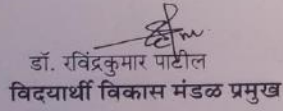 डॉ. रविंद्रकुमार पाटील
विदयार्थी विकास मंडळ प्रमुख